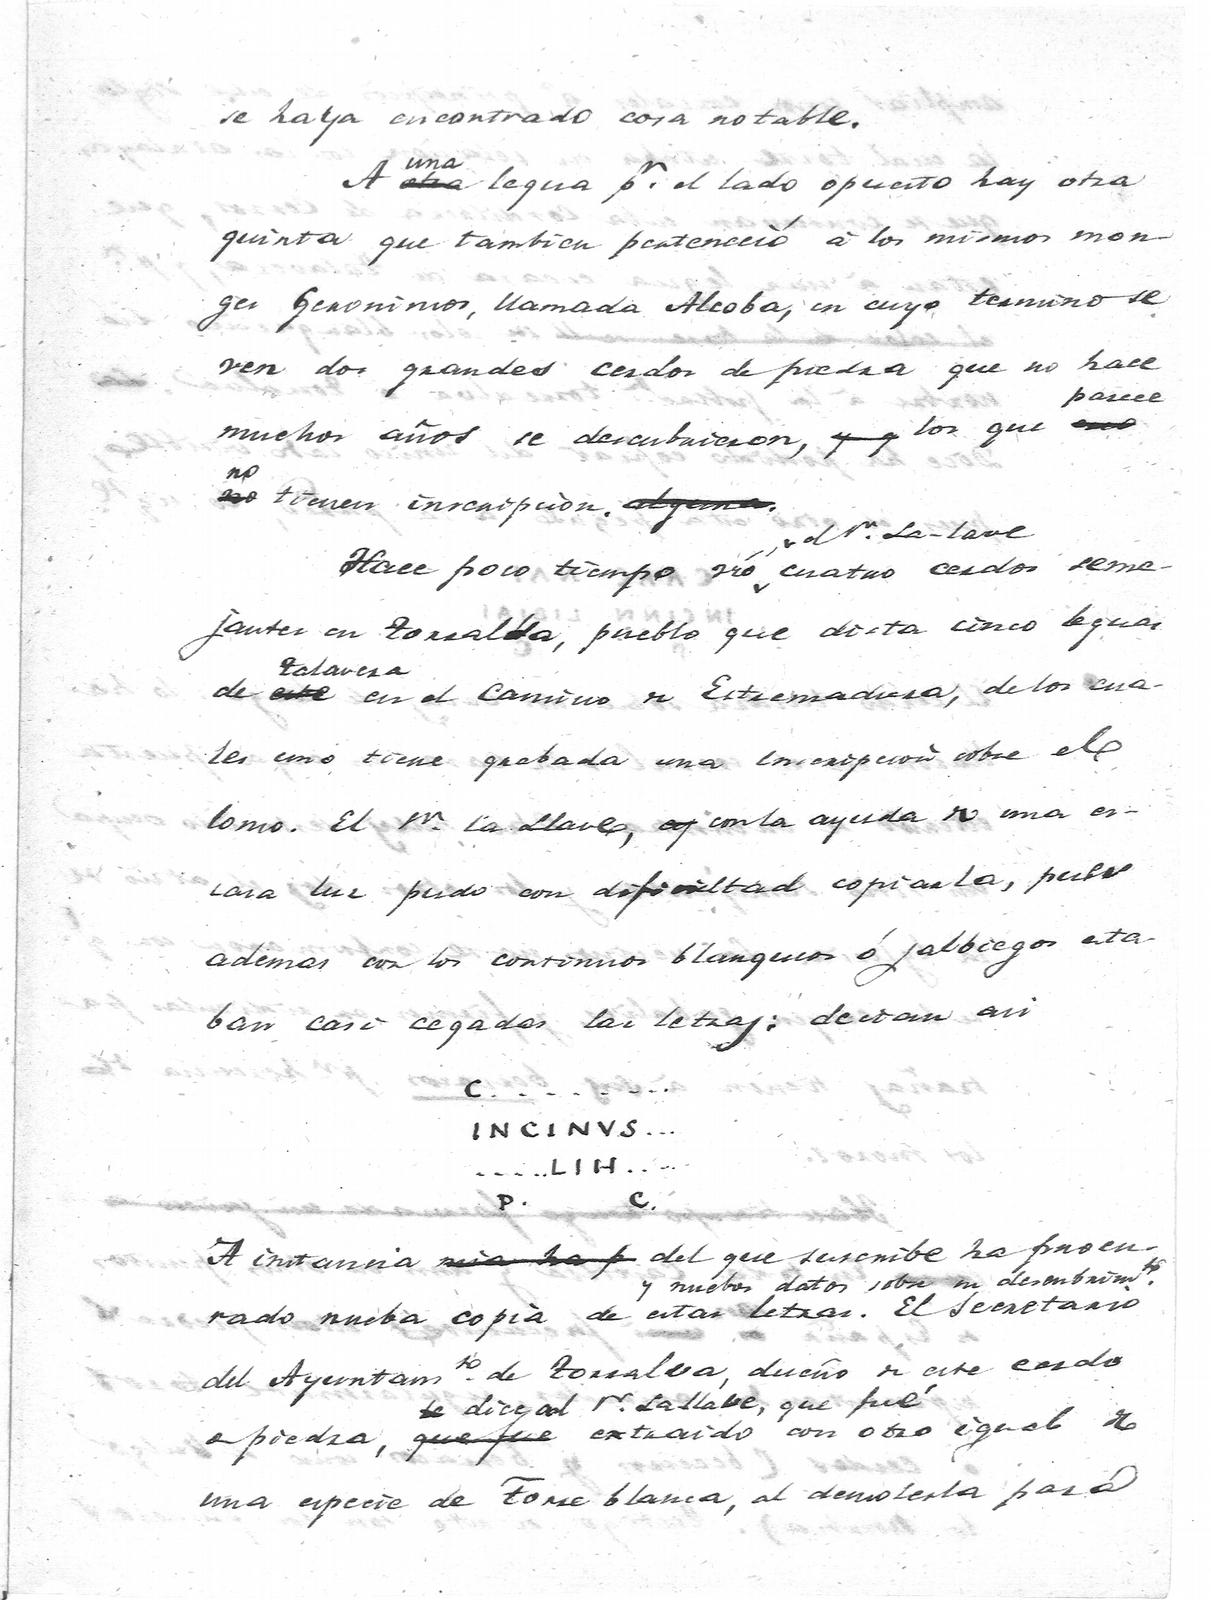 se haya encontrado cosa notable.
una
A otra legua pr. el lado opuesto hay otra
quinta que tambien perteneció à los mismos mon-
ges Geronimos, llamada Alcoba, en cuyo termino se
ven dos grandes cerdos de piedra que no hace
parece
muchos años se descubrieron, y q los que
no
no tienen inscripcion. alguna.
el Sr. La-Llave
Hace poco tiempo vió cuatro cerdos seme-
jantes en Torralba, pueblo que dista cinco leguas
Talavera
de este en el Camino de Estremadura, de los cua-
les uno tiene grabada una inscripcion sobre el
lomo. El Sr. La Llave, con la ayuda de una es-
casa luz pudo con dificultad copiarla, pues
ademas con los continuos blanqueos ó jalbiegos esta-
ban casi cegadas las letras: decian asi
C. . . . . . . . . .
INCINVS...
.....LIH.....
P. C.
A instancia mia ha p del que suscribe ha procu-
y nuebos datos sobre su descubrimto.
rado nueba copia de estas letras. El Secretario
del Ayuntamto. de Torralva, dueño de este cerdo
le dice al Sr. La Llave, que fué
de piedra, que fue extraido con otro igual de
una especie de Torre blanca, al demolerla para